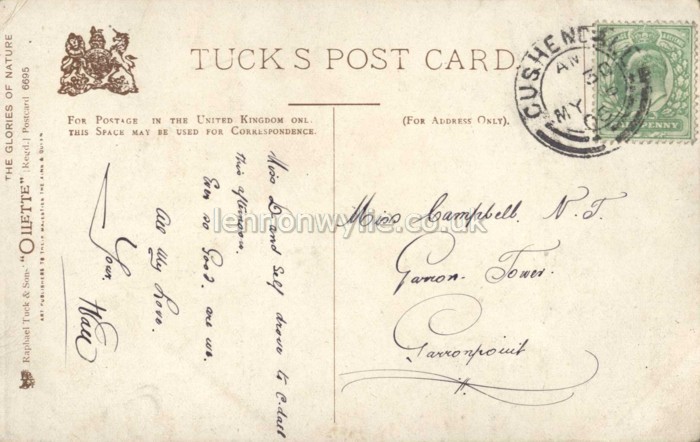 TUCK'S POST CARD.
FOR POSTAGE IN THE UNITED KINGDOM ONL.
THIS SPACE MAY BE USED FOR CORRESPONDENCE.
(FOR ADDRESS ONLY).
CUSHENDALL
MY
HALFPENNY
Miss D and Self drove to C.dall
this afternoon.
Ever so Good. are we.
All My Love.
Your
Miss Campbell. N. T.
Garron. Tower.
Garronpoint
lennonwylie.co.uk
THE GLORIES OF NATURE
Raphael Tuck & Sons' "OILETTE" [Regd.] Postcard 6695
ART PUBLISHERS TO THEIR MAJESTIES THE KING & QUEEN